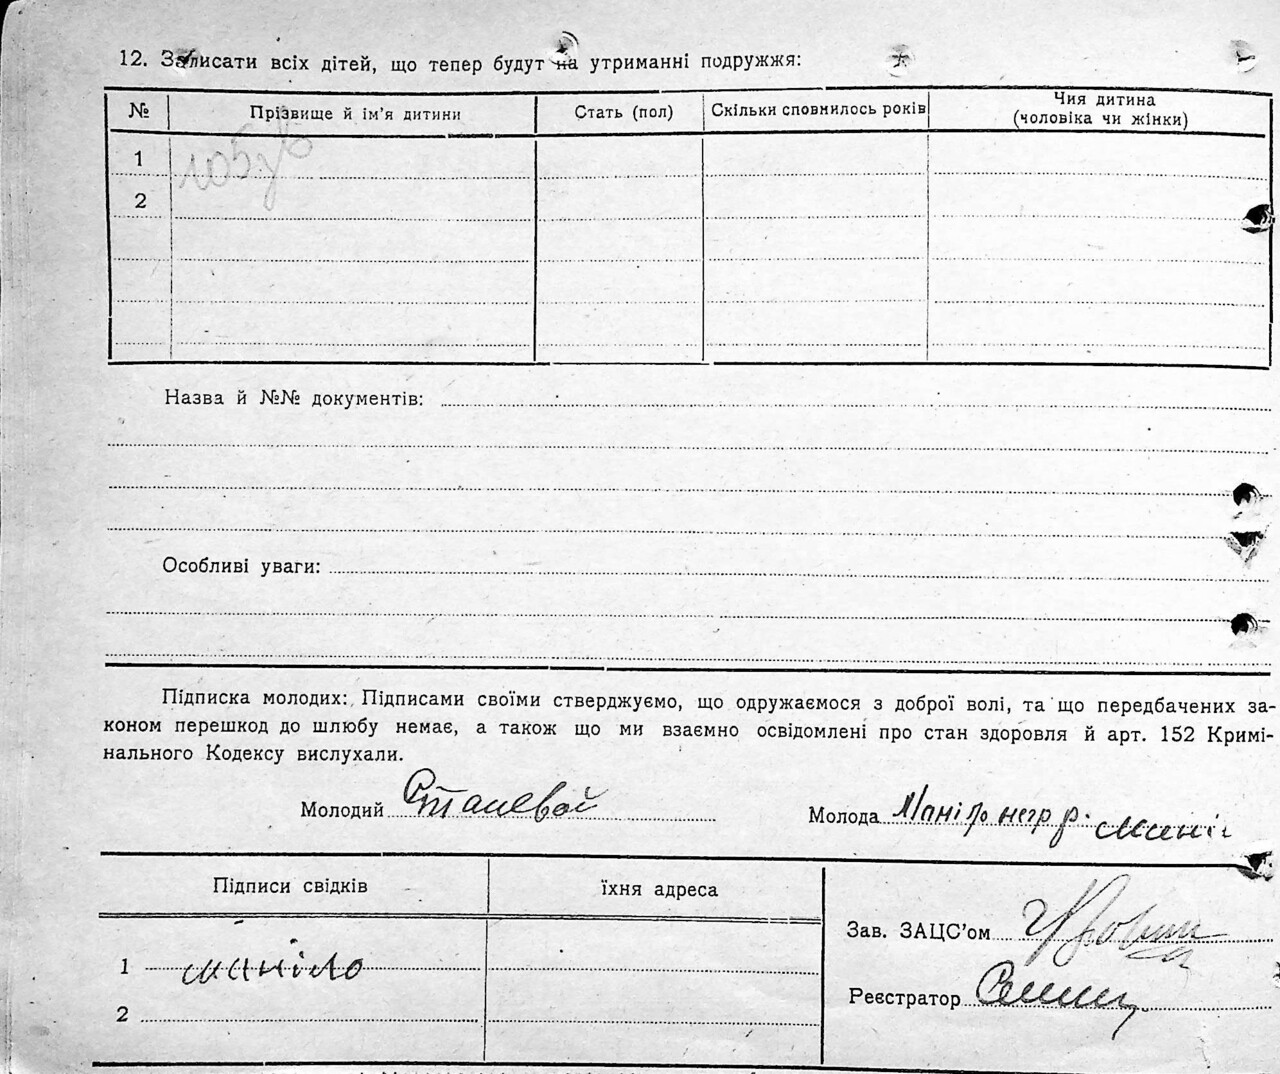 12. Записати всіх дітей, що тепер будут на утриманні подружжя:
№ Прізвище й ім'я дитини Стать (пол) Скільки сповнилось років Чия дитина
(чоловіка чи жінки)
1
2
Назва й №№ документів:
Особливі уваги:
Підписка молодих: Підписами своїми стверджуємо, що одружаємося з доброї волі, та що передбачених за-
коном перешкод до шлюбу немає, а також що ми взаємно освідомлені про стан здоровля й арт. 152 Кримі-
нального Кодексу вислухали.
Молодий Молода
Підписи свідків їхня адреса
Зав. ЗАЦС'ом
1 маніло
Реєстратор
2